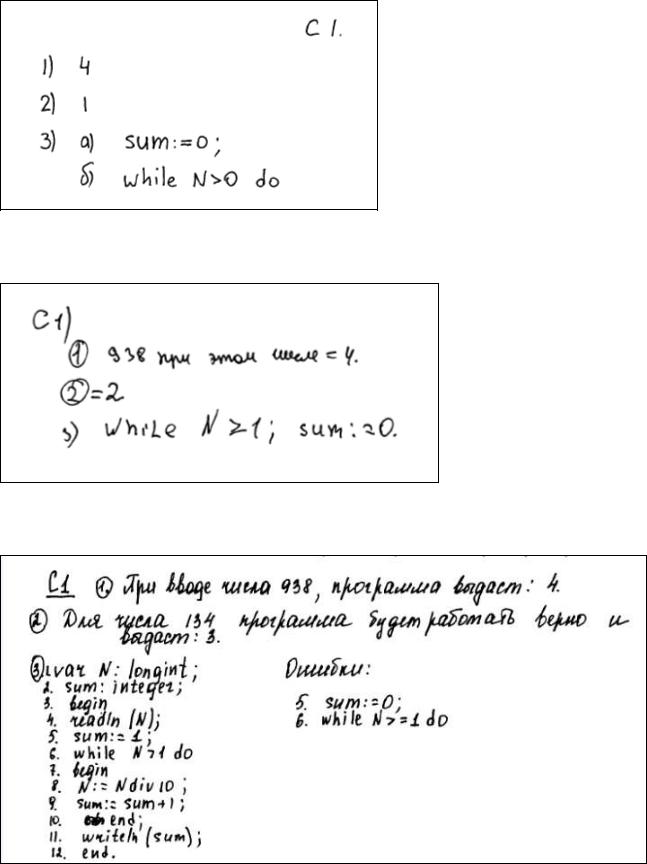 C 1.
1) 4
2) 1
3) а) sum:=0;
б) while N>0 do
C1)
① 938 при этом числе = 4.
②=2
3) while N ≥1; sum:=0.
C1 ①. При вводе числа 938, программа выдаст: 4.
② Для числа 134 программа будет работать верно и
выдаст: 3.
③ 1. var N: longint;
2. sum: integer;
3. begin
4. readln (N);
5. sum:= 1;
6. while N>1 do
7. begin
8. N:= N div 10;
9. sum:= sum+1;
10. end;
11. writeln (sum);
12. end.
Ошибки:
5. sum:=0;
6. while N>=1 do